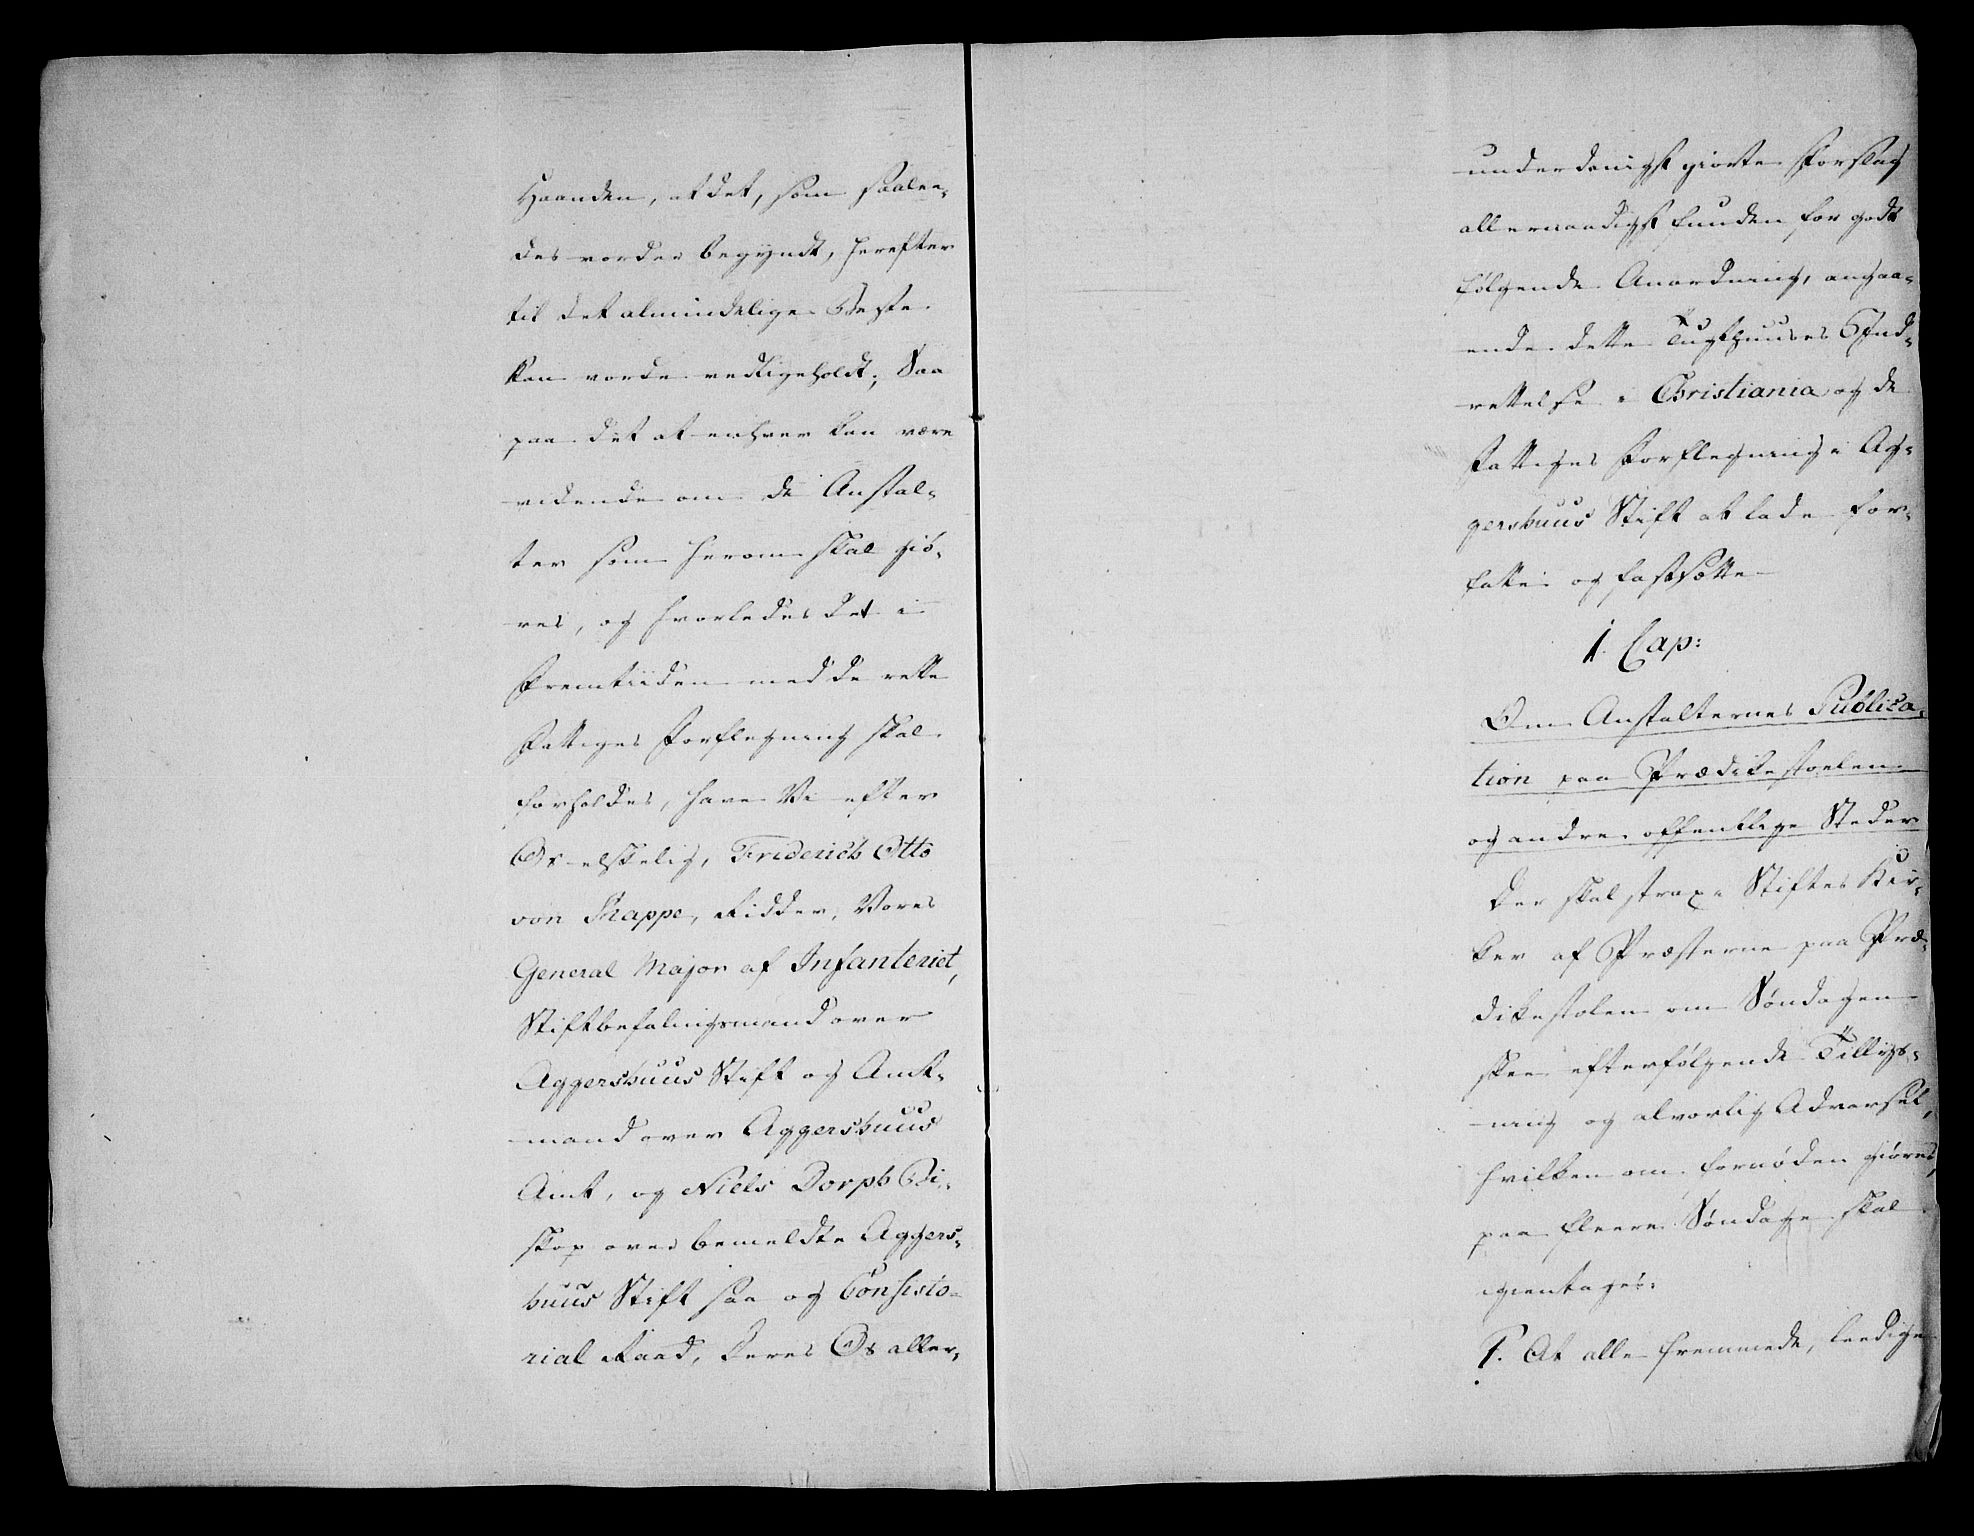 Haanden, at det, som saalee-
des vorder begyndt, herefter
til det almindelige Beste
kan vorde vedligeholdt; Saa
paa det at enhver kan være
vidende om de Anstal-
ter som herom skal giö-
res, og hvorledes det i
Fremtiiden med de rette
Fattiges Forflegning skal
forholdes, have Vi efter
Os elskelig, Friderich Otto
von Rappe, Ridder, Vores
General Major af Infanteriet,
Stiftbefalingsmand over
Aggershuus Stift og Amt-
mand over Aggershuus
Amt, og Niels Dorph Bi-
skop over bemeldte Aggers-
huus Stift saa og Consisto-
rial Raad, deres Os aller-
underdanigst giorte Forslag
allernaadigst funden for godt
følgende Anordning, angaa-
ende dette Tugthuuses Ind-
rettelse i Christiania og de
Fattiges Forflegning i Ag-
gershuus Stift at lade for-
fatte og fastsætte
1. Cap:
Om Anstalternes Publica-
tion paa Prædikestoelen
og andre offentlige Steder
Der skal strax i Stiftes Kir-
ker af Præsterne paa Præ-
dikestolen om Søndagen
skee efterfølgende Tillys-
ning og alvorlig Advarsel,
hvilken om fornøden giøres,
paa fleere Søndage skal
igientages:
1. At alle fremmede, leedige